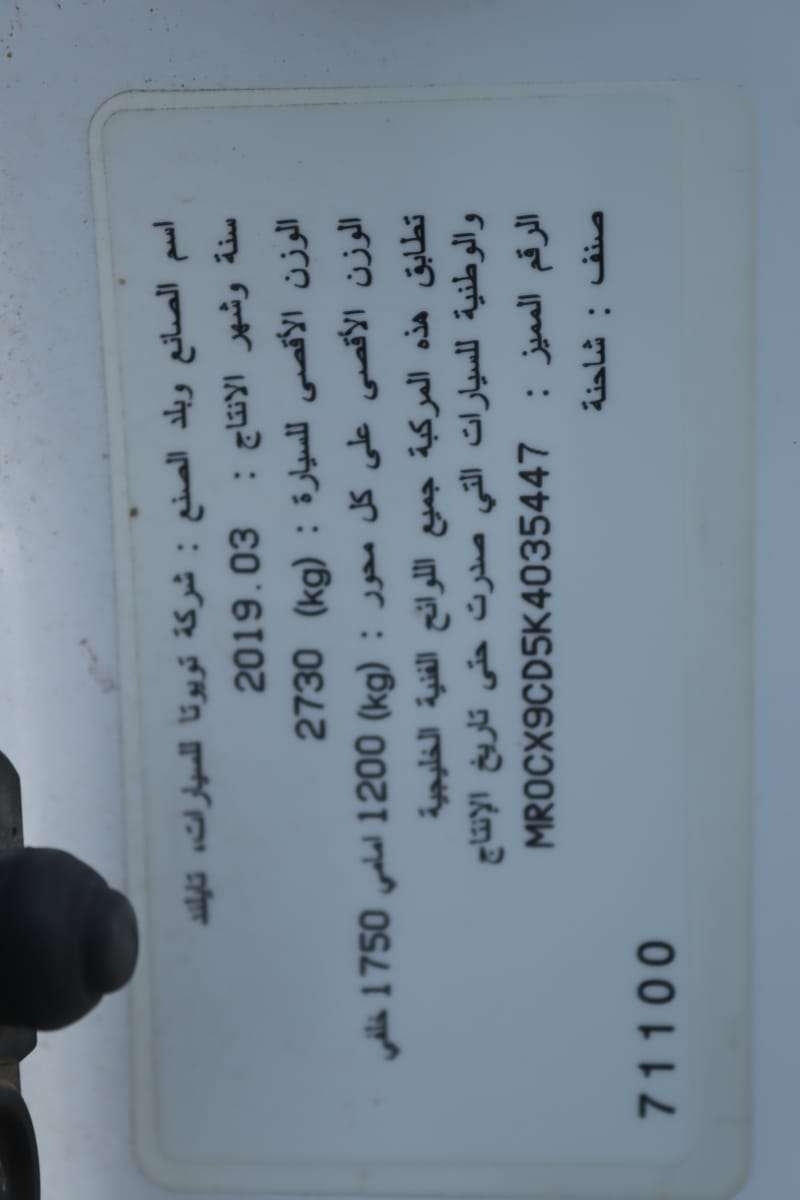 اسم الصانع وبلد الصنع : شركة تويوتا للسيارات، تايلاند
سنة وشهر الانتاج : 2019.03
الوزن الأقصى للسيارة : (kg) 2730
الوزن الأقصى على كل محور : (kg) 1200 امامي 1750 خلفي
تطابق هذه المركبة جميع اللوائح الفنية الخليجية
والوطنية للسيارات التي صدرت حتى تاريخ الإنتاج
الرقم المميز : MR0CX9CD5K4035447
صنف : شاحنة
71100